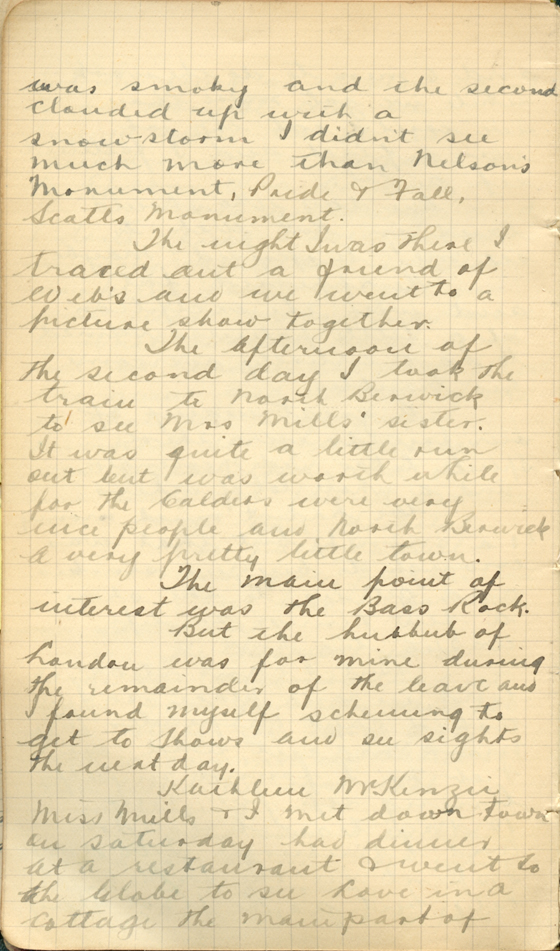 was smoky and the second
clouded up with a
snow storm I didn't see
much more than Nelson's
Monument, Pride & Fall,
Scotts Monument.
The night I was there I
traced out a friend of
Web's and we went to a
picture show together.
The afternoon of
the second day I took the
train to North Berwick
to see Mrs Mills' sister.
It was quite a little run
out but was worth while
for the Calders were very
nice people and North Berwick
a very pretty little town.
The main point of
interest was the Bass Rock.
But the hubbub of
London was for mine during
the remainder of the leave and
I found myself scheming to
get to shows and see sights
the next day.
Kathleen McKenzie
Miss Mills & I met down town
on Saturday had dinner
at a restaurant & went to
the Globe to see Love in a
Cottage the main part of